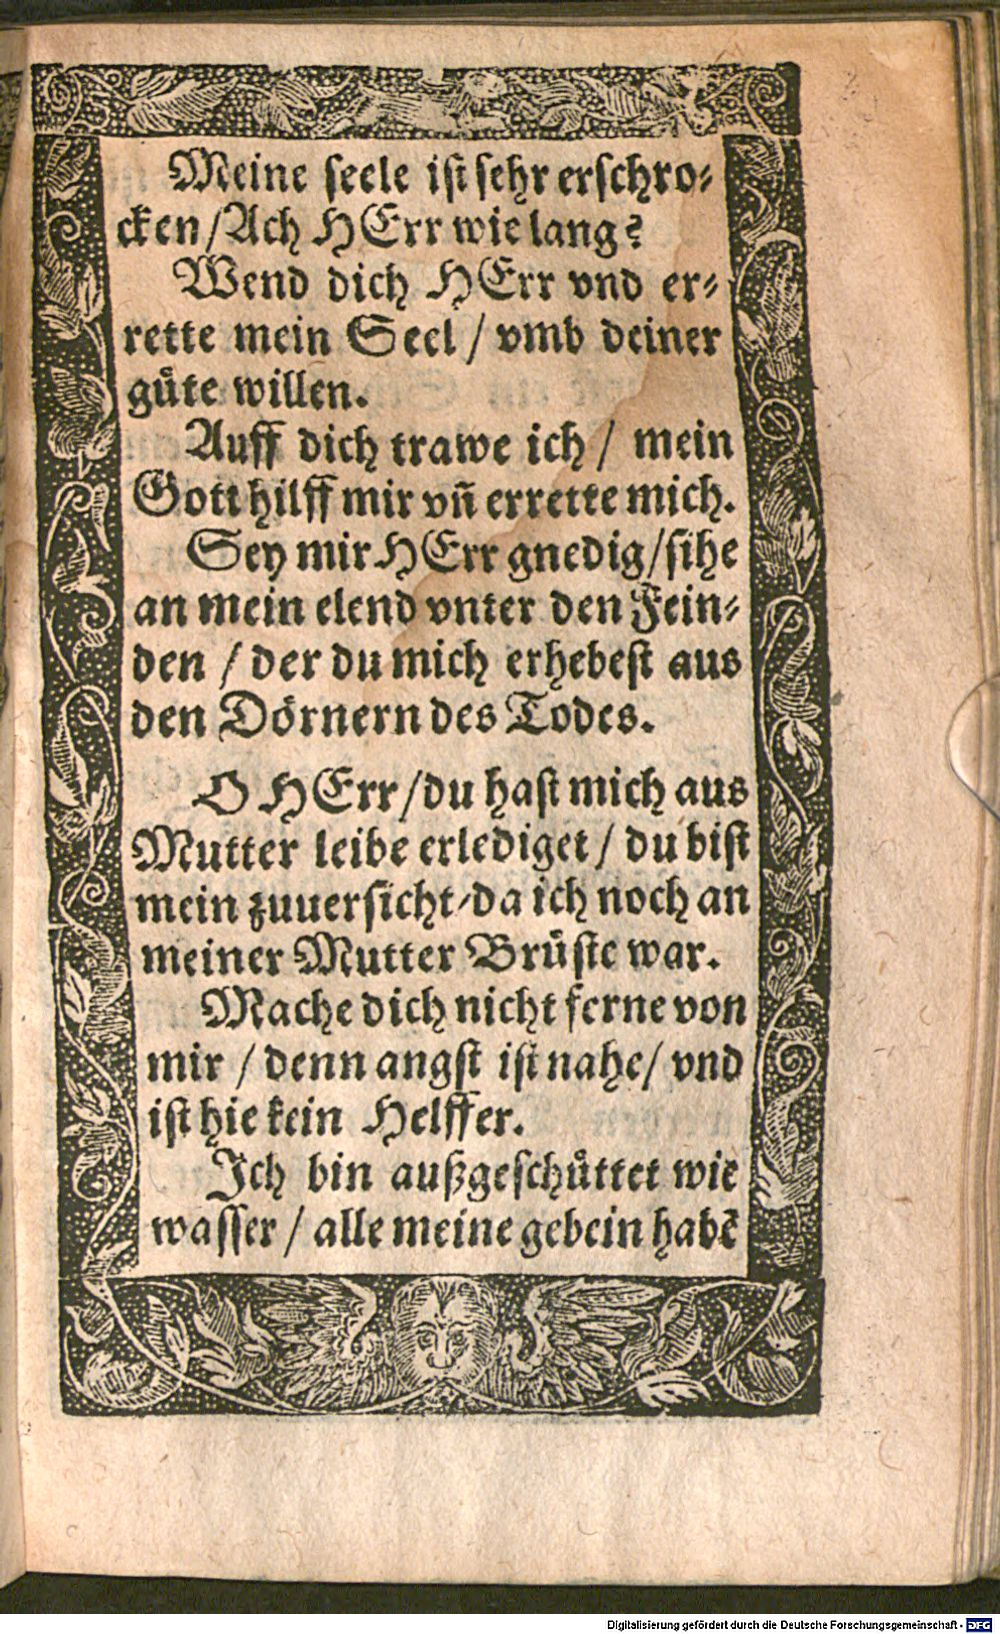 Meine seele ist sehr erschro⸗
cken / Ach HErr wie lang?
Wend dich HErr vnd er⸗
rette mein Seel / vmb deiner
guͤte willen.
Auff dich trawe ich / mein
Gott hilff mir vñ errette mich.
Sey mir HErr gnedig / sihe
an mein elend vnter den Fein⸗
den / der du mich erhebest aus
den Dörnern des Todes.
O HErr / du hast mich aus
Mutter leibe erlediget / du bist
mein zuuersicht / da ich noch an
meiner Mutter Bruͤste war.
Mache dich nicht ferne von
mir / denn angst ist nahe / vnd
ist hie kein Helffer.
Ich bin außgeschuͤttet wie
wasser / alle meine gebein habē
Digitalisierung gefördert durch die Deutsche Forschungsgemeinschaft - DFG